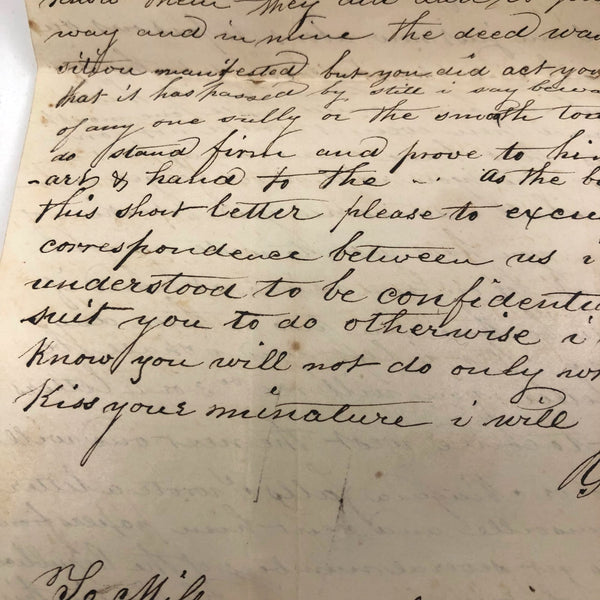 them they did
way and in mine the deed was
sition manifested but you did act you
that it has passed by still i say
of any one sully or the smooth
do stand firm and prove to him
-art & hand to the - . As the
this short letter please to excu
correspondence between us i
understood to be confidenti
suit you to do otherwise i
know you will not do only
Kiss your minature i will
To